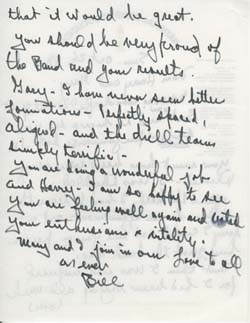 that it would be great.
You should be very proud of
the Band and your results.
Harry - I have never seen better
formation - Perfectly spaced,
aligned - and the drill teams
simply terrific.
You are doing a wonderful job
and Harry - I am so happy to see
you are feeling well again and with
your enthusiasm & vitality.
Mary and I join in our love to all
as ever
Bill